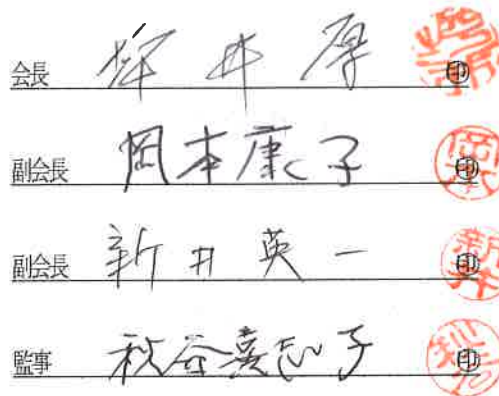 会長 井 厚 ㊞
副会長 岡本康子 ㊞
副会長 新井英一 ㊞
監事 秋谷喜志子 ㊞